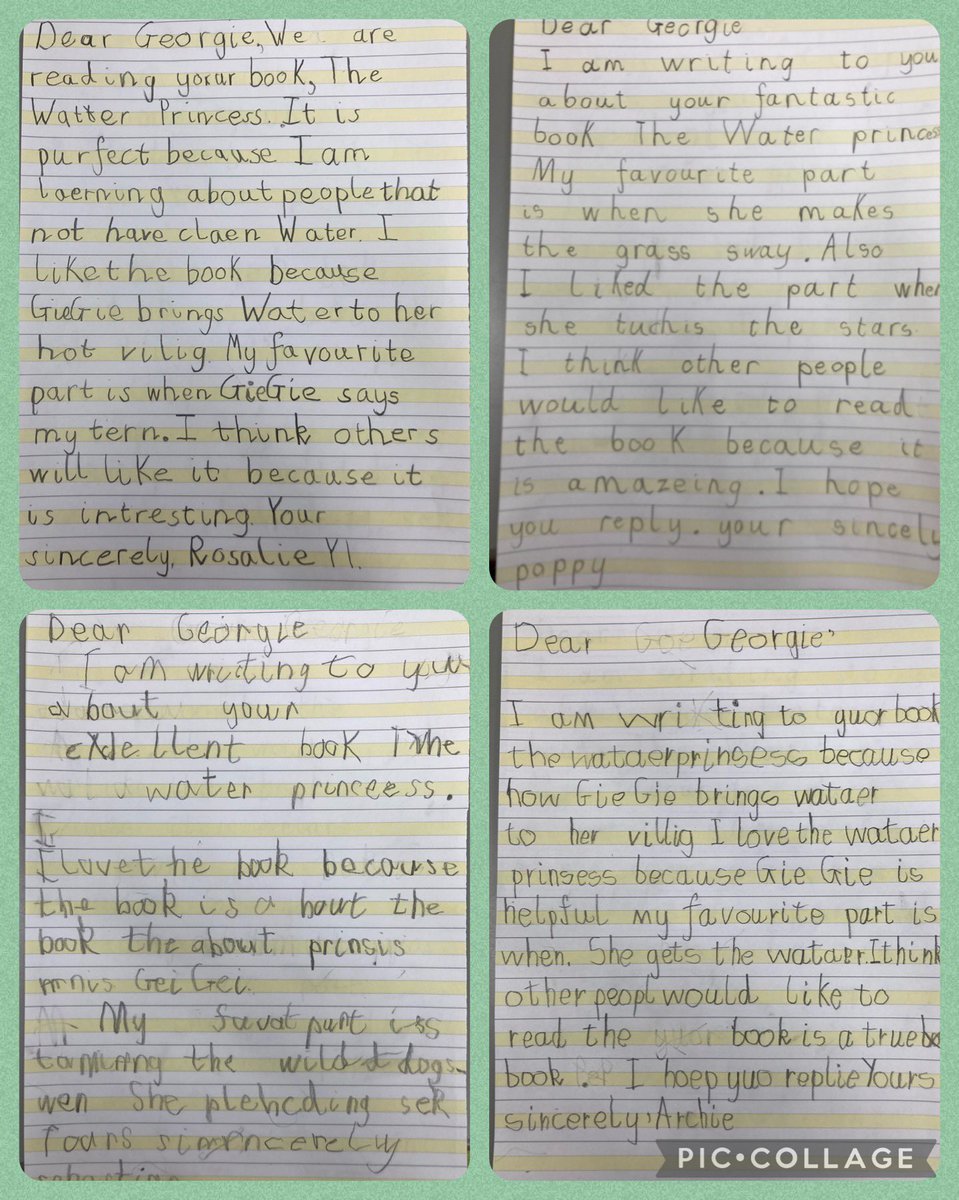 Dear Georgie, We are
reading yorur book, The
Watter Princess. It is
purfect because I am
laerning about people that
not have claen Water. I
like the book because
GieGie brings Water to her
hot vilig. My favourite
part is when GieGie says
my tern. I think others
will like it because it
is intresting. Your
sincerely, Rosalie Y1.
Dear Georgie
I am writing to you
about your fantastic
book The Water princess
My favourite part
is when she makes
the grass sway. Also
I liked the part when
she tuchis the stars
I think other people
would like to read
the book because it
is amazeing. I hope
you reply. your sincely
poppy
Dear Georgie
I am writing to you
about your
exellent book The
water princeess.
I
I love the book because
the book is a bout the
book the about prinsis
GeiGei.
My favot part iss
the wild dogs
wen She plehcding sek
Yours sincerely
sebastian
Dear Georgie,
I am writing to yuor book
the wataerprinsess because
how GieGie brings wataer
to her villig I love the wataer
prinsess because Gie Gie is
helpful my favourite part is
when. She gets the wataer. I think
other peopl would like to
read the book is a true bo
book. I hoep yuo replie Yours
sincerely, Archie
PIC•COLLAGE